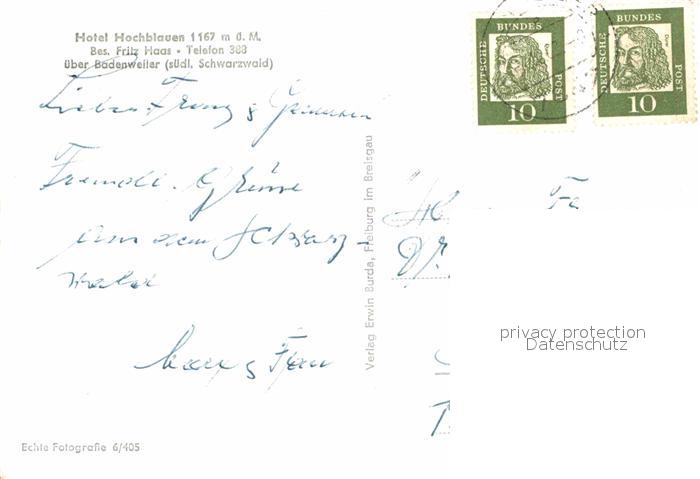 Hotel Hochblauen 1167 m ü. M.
Bes. Fritz Haas • Telefon 388
über Badenweiler (südl. Schwarzwald)
Lieber Franz &
Grüsse
aus dem Schwarz-
wald
& Frau
Verlag Erwin Burda, Freiburg im Breisgau
Echte Fotografie 6/405
DEUTSCHE BUNDES POST
Dürer
10
DEUTSCHE BUNDES POST
Dürer
10
Fa
Dr.
privacy protection
Datenschutz